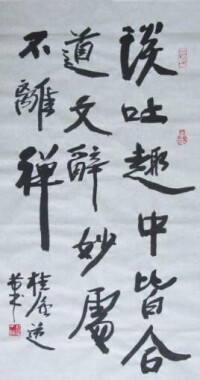 談吐趣中皆合
道文辭妙處
不離禪